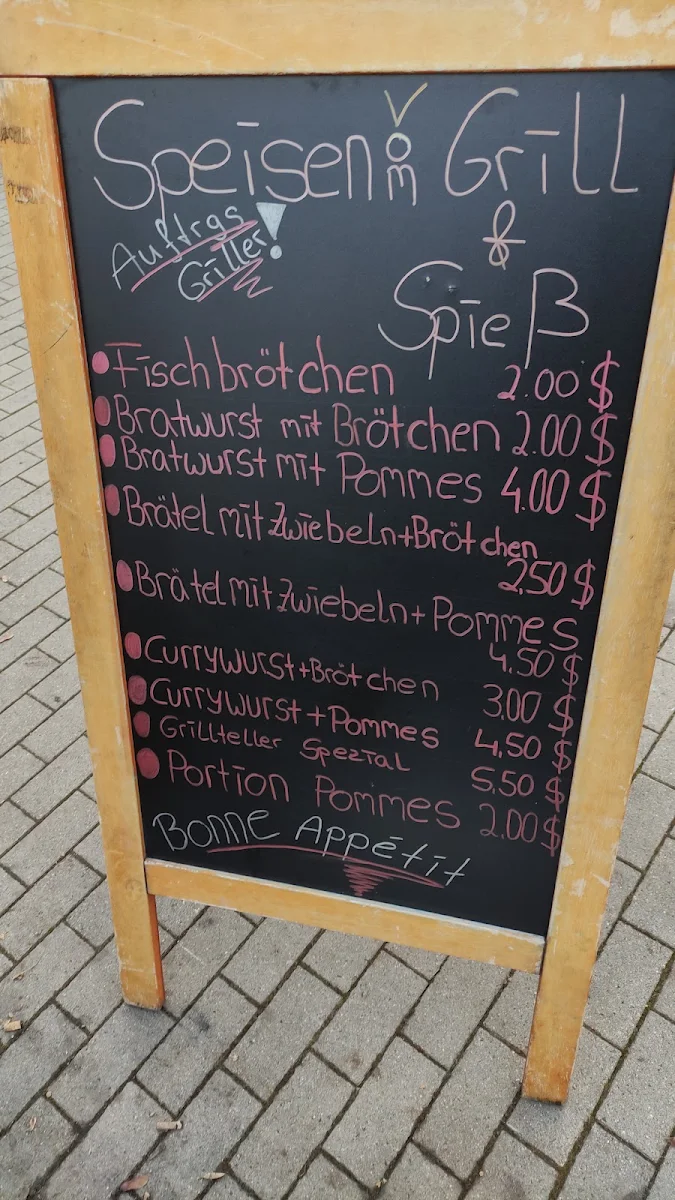 Speisen im Grill
&
Spieß
Auftrgs
Griller!
Fischbrötchen 2.00 $
Bratwurst mit Brötchen 2.00 $
Bratwurst mit Pommes 4.00 $
Brätel mit Zwiebeln+Brötchen
2,50 $
Brätel mit Zwiebeln+Pommes
4,50 $
Currywurst+Brötchen 3.00 $
Currywurst+Pommes 4,50 $
Grillteller Spezial 5,50 $
Portion Pommes 2.00 $
Bonne Appétit